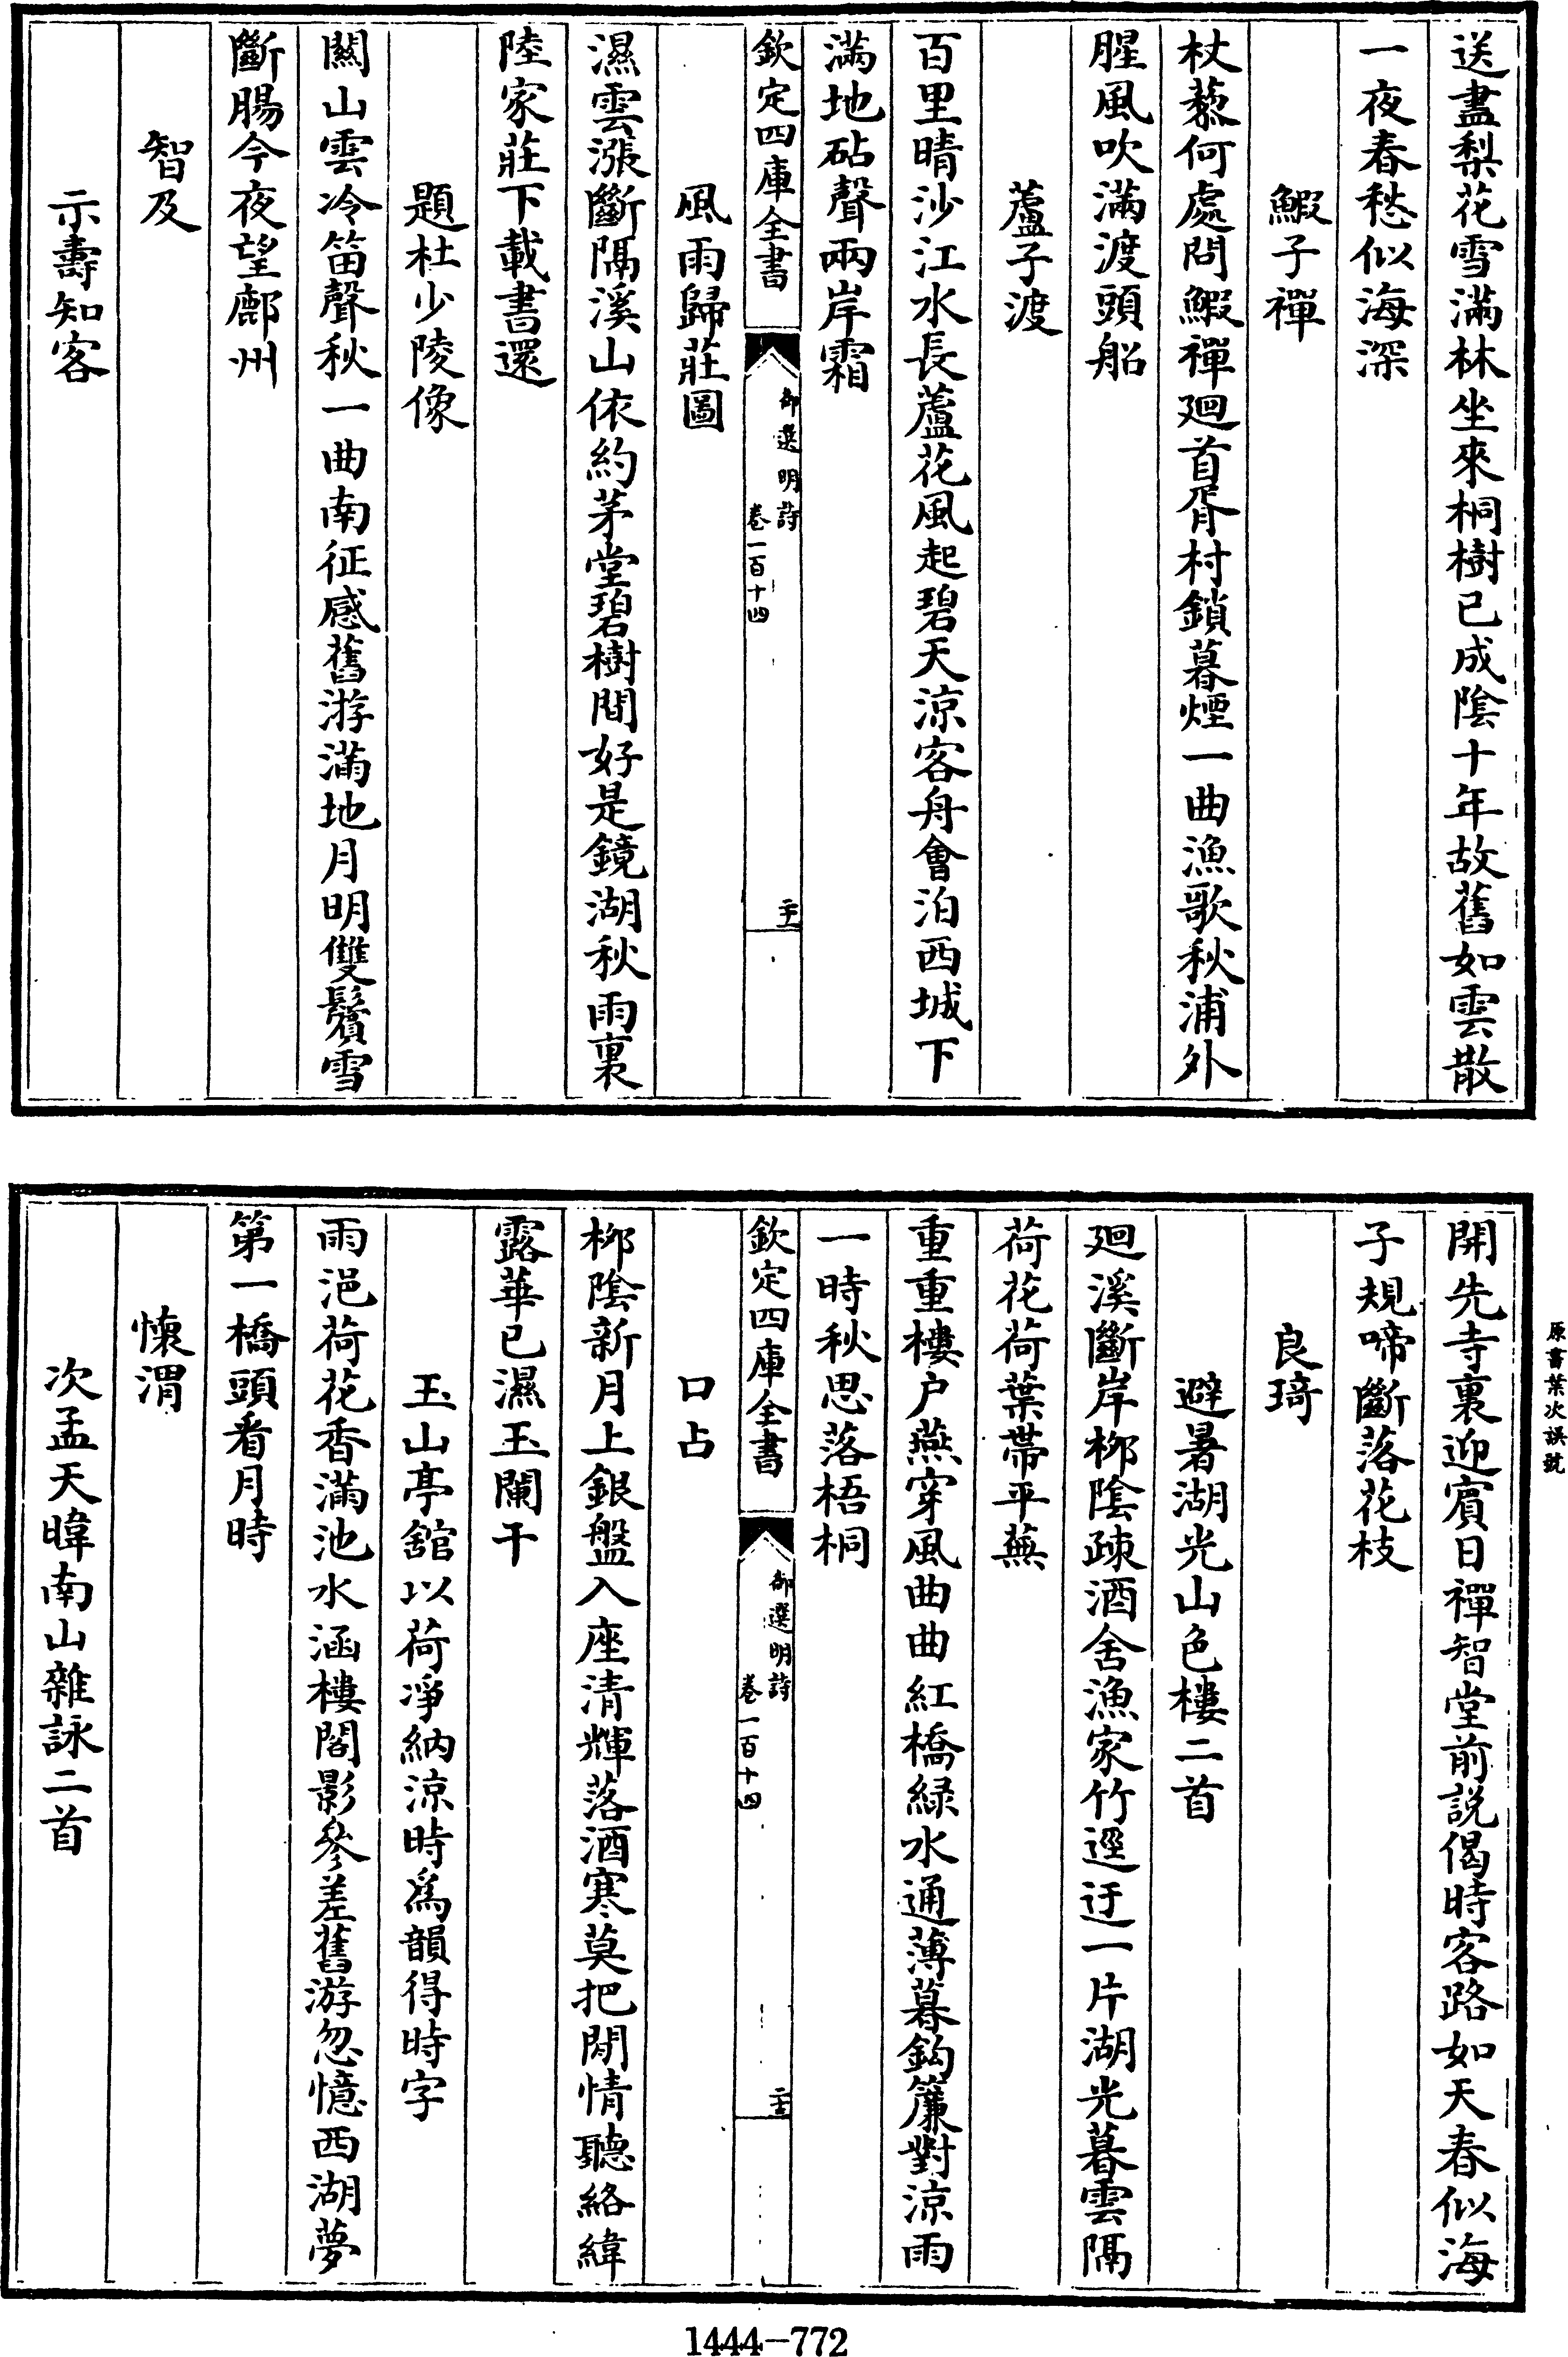 送盡梨花雪滿林坐來桐樹已成陰十年故舊如雲散
一夜春愁似海深
鰕子禪
杖藜何處問鰕禪廻首胥村鎖暮煙一曲漁歌秋浦外
腥風吹滿渡頭船
蘆子渡
百里晴沙江水長蘆花風起碧天涼客舟會泊西城下
滿地砧聲兩岸霜
欽定四庫全書
御選明詩
卷一百十四
風雨歸莊圖
濕雲漲斷隔溪山依約茅堂碧樹間好是鏡湖秋雨裏
陸家莊下載書還
題杜少陵像
關山雲冷笛聲秋一曲南征感舊游滿地月明雙鬢雪
斷腸今夜望鄜州
智及
示壽知客
原書葉次誤號
開先寺裏迎賓日禪智堂前說偈時客路如天春似海
子規啼斷落花枝
良琦
避暑湖光山色樓二首
廻溪斷岸柳陰疎酒舍漁家竹逕迂一片湖光暮雲隔
荷花荷葉帶平蕪
重重樓户燕穿風曲曲紅橋緑水通薄暮鈎簾對涼雨
一時秋思落梧桐
欽定四庫全書
御選明詩
卷一百十四
口占
柳陰新月上銀盤入座清輝落酒寒莫把閒情聽絡緯
露華已濕玉闌干
玉山亭舘以荷凈納涼時爲韻得時字
雨浥荷花香滿池水涵樓閣影參差舊游忽憶西湖夢
第一橋頭看月時
懷渭
次孟天暐南山雜詠二首
1444-772